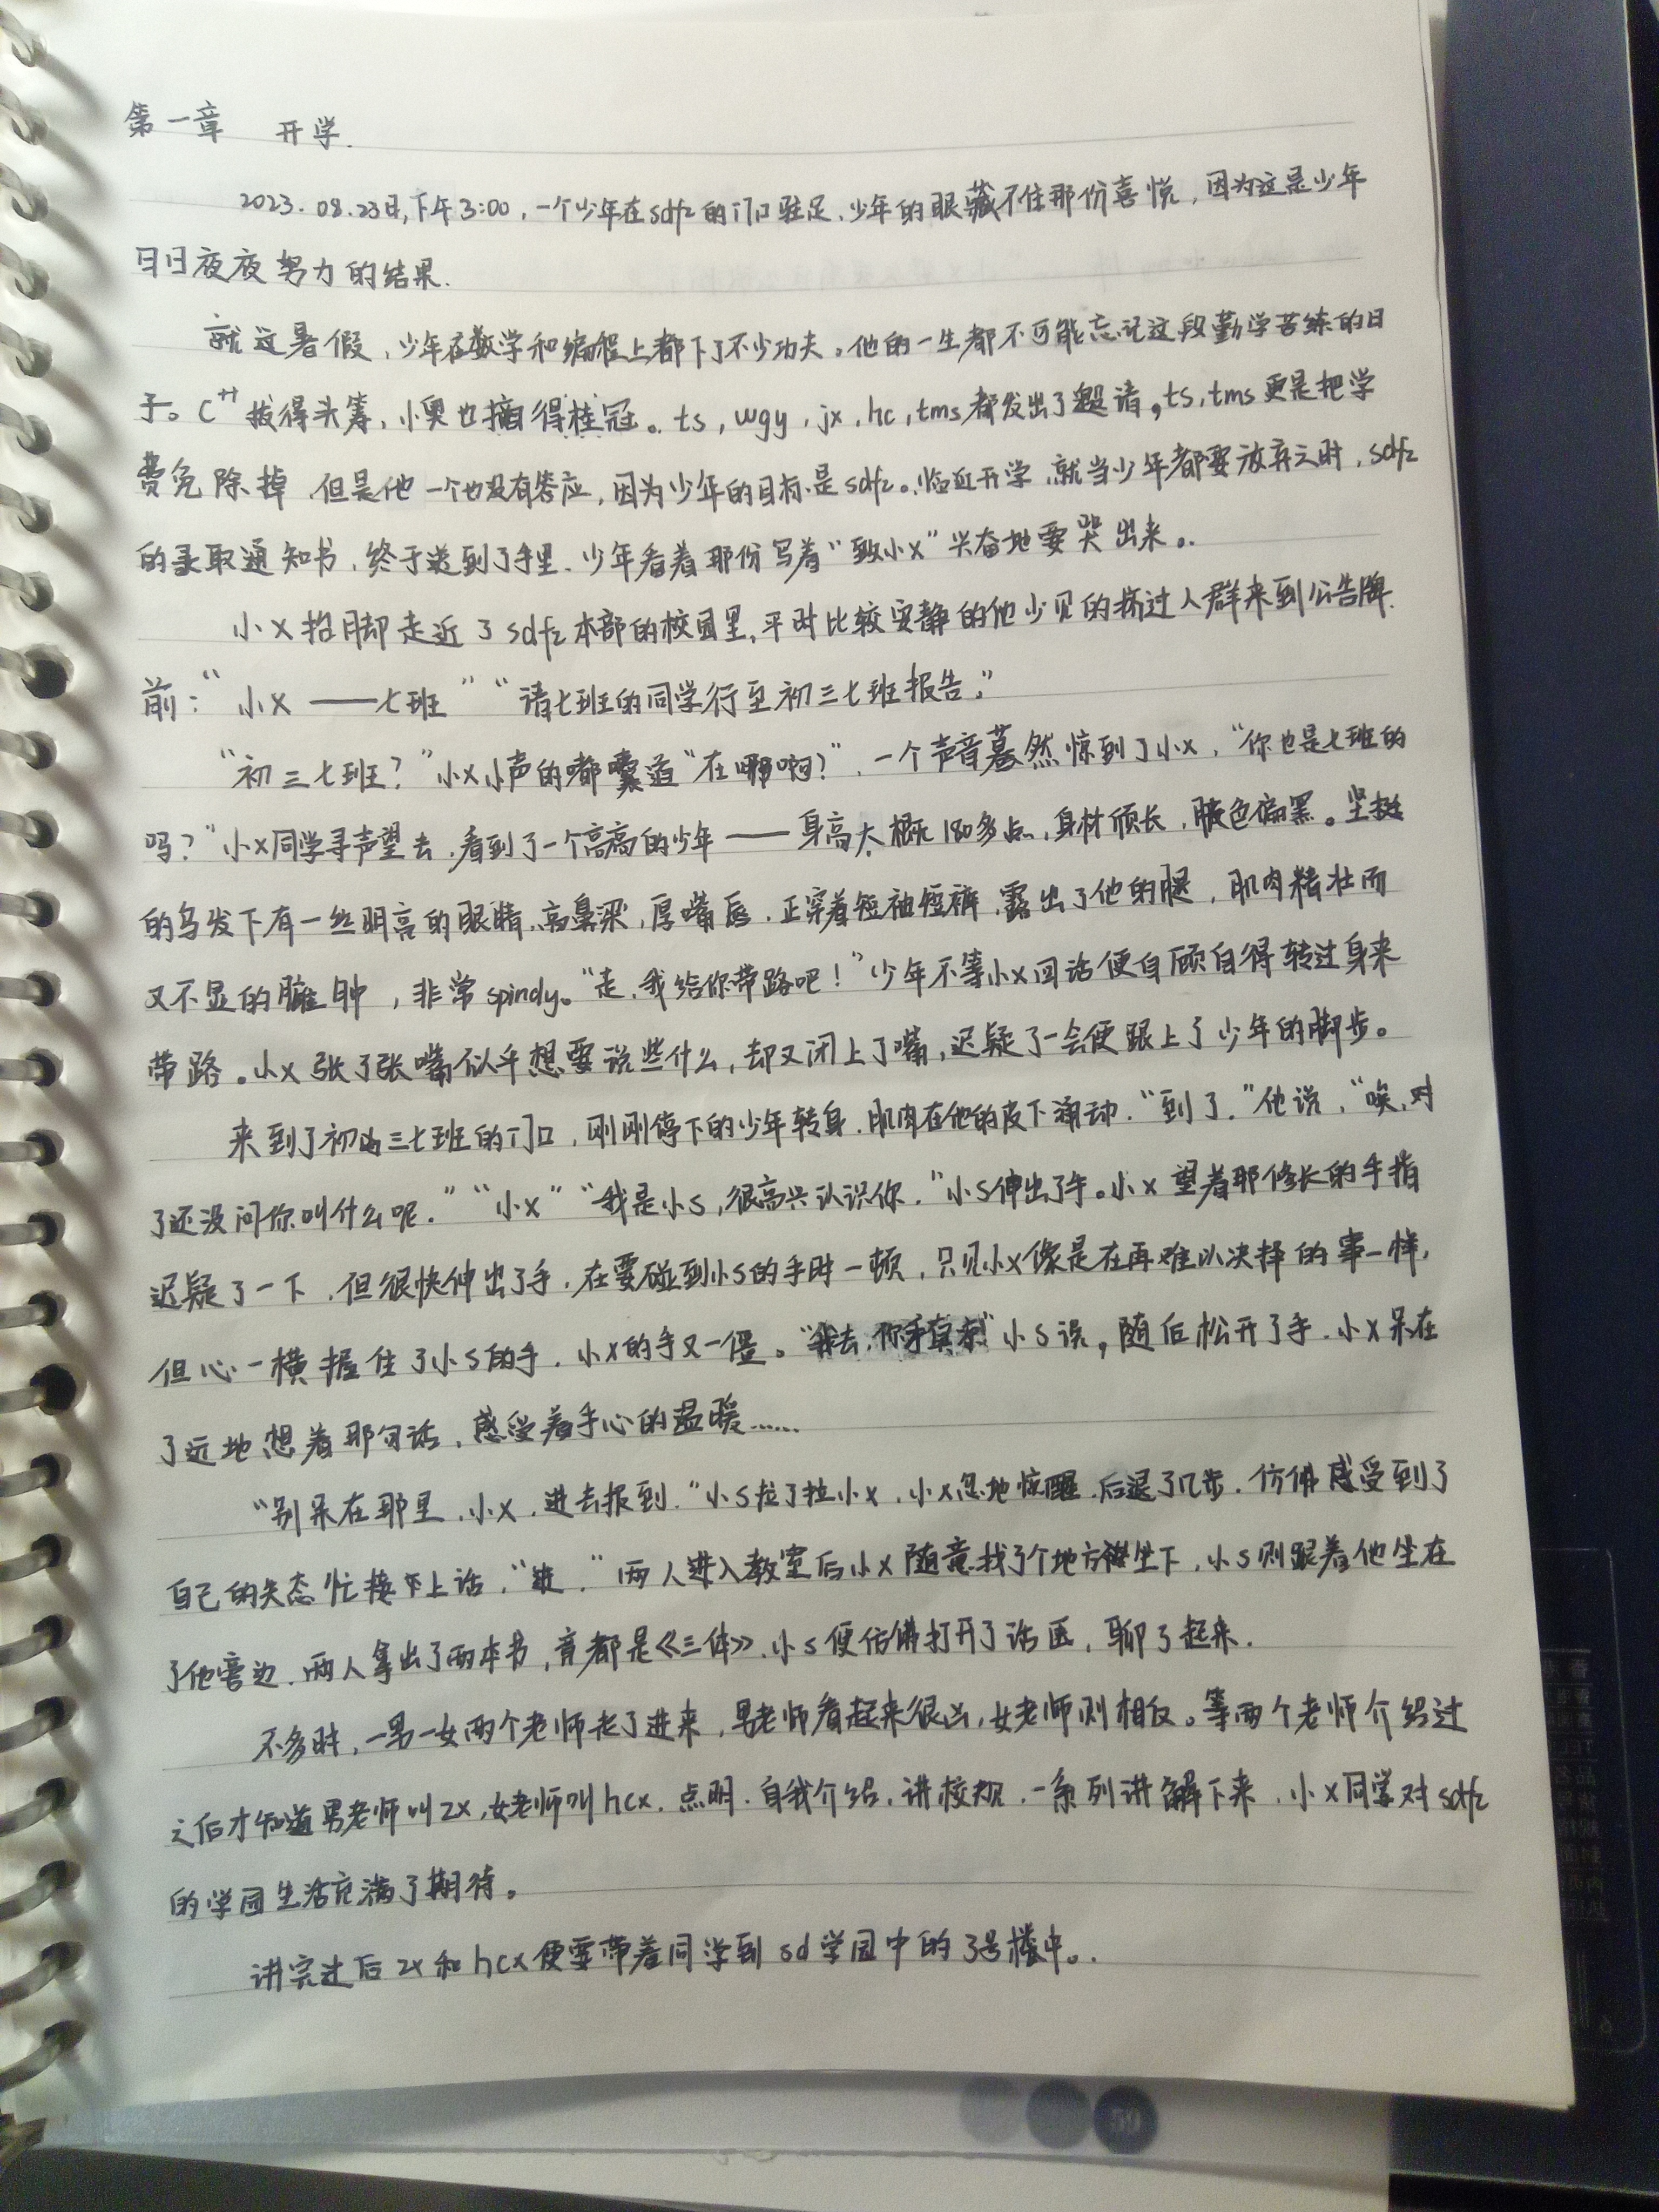 第一章 开学.
2023.08.23日,下午3:00,一个少年在sdfz的门口驻足.少年的眼藏不住那份喜悦,因为这是少年
日日夜夜努力的结果.
就这暑假,少年在数学和编程上都下了不少功夫。他的一生都不可能忘记这段勤学苦练的日
子。C++拔得头筹,小奥也摘得桂冠。ts,wgy,jx,hc,tms都发出了邀请,ts,tms更是把学
费免除掉,但是他一个也没有答应,因为少年的目标是sdfz。临近开学,就当少年都要放弃之时,sdfz
的录取通知书,终于送到了手里.少年看着那份写着“致小x”兴奋地要哭出来。
小x抬脚走近了sdfz本部的校园里,平时比较安静的他少见的挤过人群来到公告牌
前:“小x——七班”“请七班的同学行至初三七班报告.”
“初三七班?”小x小声的嘟囔道“在哪啊?”,一个声音蓦然惊到了小x,“你也是七班的
吗?”小x同学寻声望去,看到了一个高高的少年——身高大概180多点,身材颀长,肤色偏黑。坚挺
的乌发下有一丝明亮的眼睛,高鼻梁,厚嘴唇.正穿着短袖短裤,露出了他的腿,肌肉精壮而
又不显的臃肿,非常spindy。“走,我给你带路吧!”少年不等小x回话便自顾自得转过身来
带路。小x张了张嘴似乎想要说些什么,却又闭上了嘴,迟疑了一会便跟上了少年的脚步。
来到了初三七班的门口,刚刚停下的少年转身.肌肉在他的皮下涌动.“到了.”他说,“唉,对
了还没问你叫什么呢.”“小x”“我是小s,很高兴认识你.”小s伸出了手。小x望着那修长的手指
迟疑了一下,但很快伸出了手,在要碰到小s的手时一顿,只见小x像是在再难以决择的事一样,
但心一横握住了小s的手.小x的手又一僵。“我去,你手真 小s说,随后松开了手.小x呆在
了远地想着那句话,感受着手心的温暖……
“别呆在那里,小x,进去报到.”小s拉了拉小x,小x忽地惊醒,后退了几步.仿佛感受到了
自己的失态忙接下上话,“进.”两人进入教室后小x随意找了个地方坐下,小s则跟着他坐在
了他旁边.两人拿出了两本书,竟都是《三体》,小s便仿佛打开了话匣,聊了起来.
不多时,一男一女两个老师走了进来,男老师看起来很凶,女老师则相反。等两个老师介绍过
之后才知道男老师叫zx,女老师叫hcx.点明.自我介绍.讲校规.一系列讲解下来,小x同学对sdfz
的学园生活充满了期待。
讲完过后zx和hcx便要带着同学到sd学园中的3号楼中。